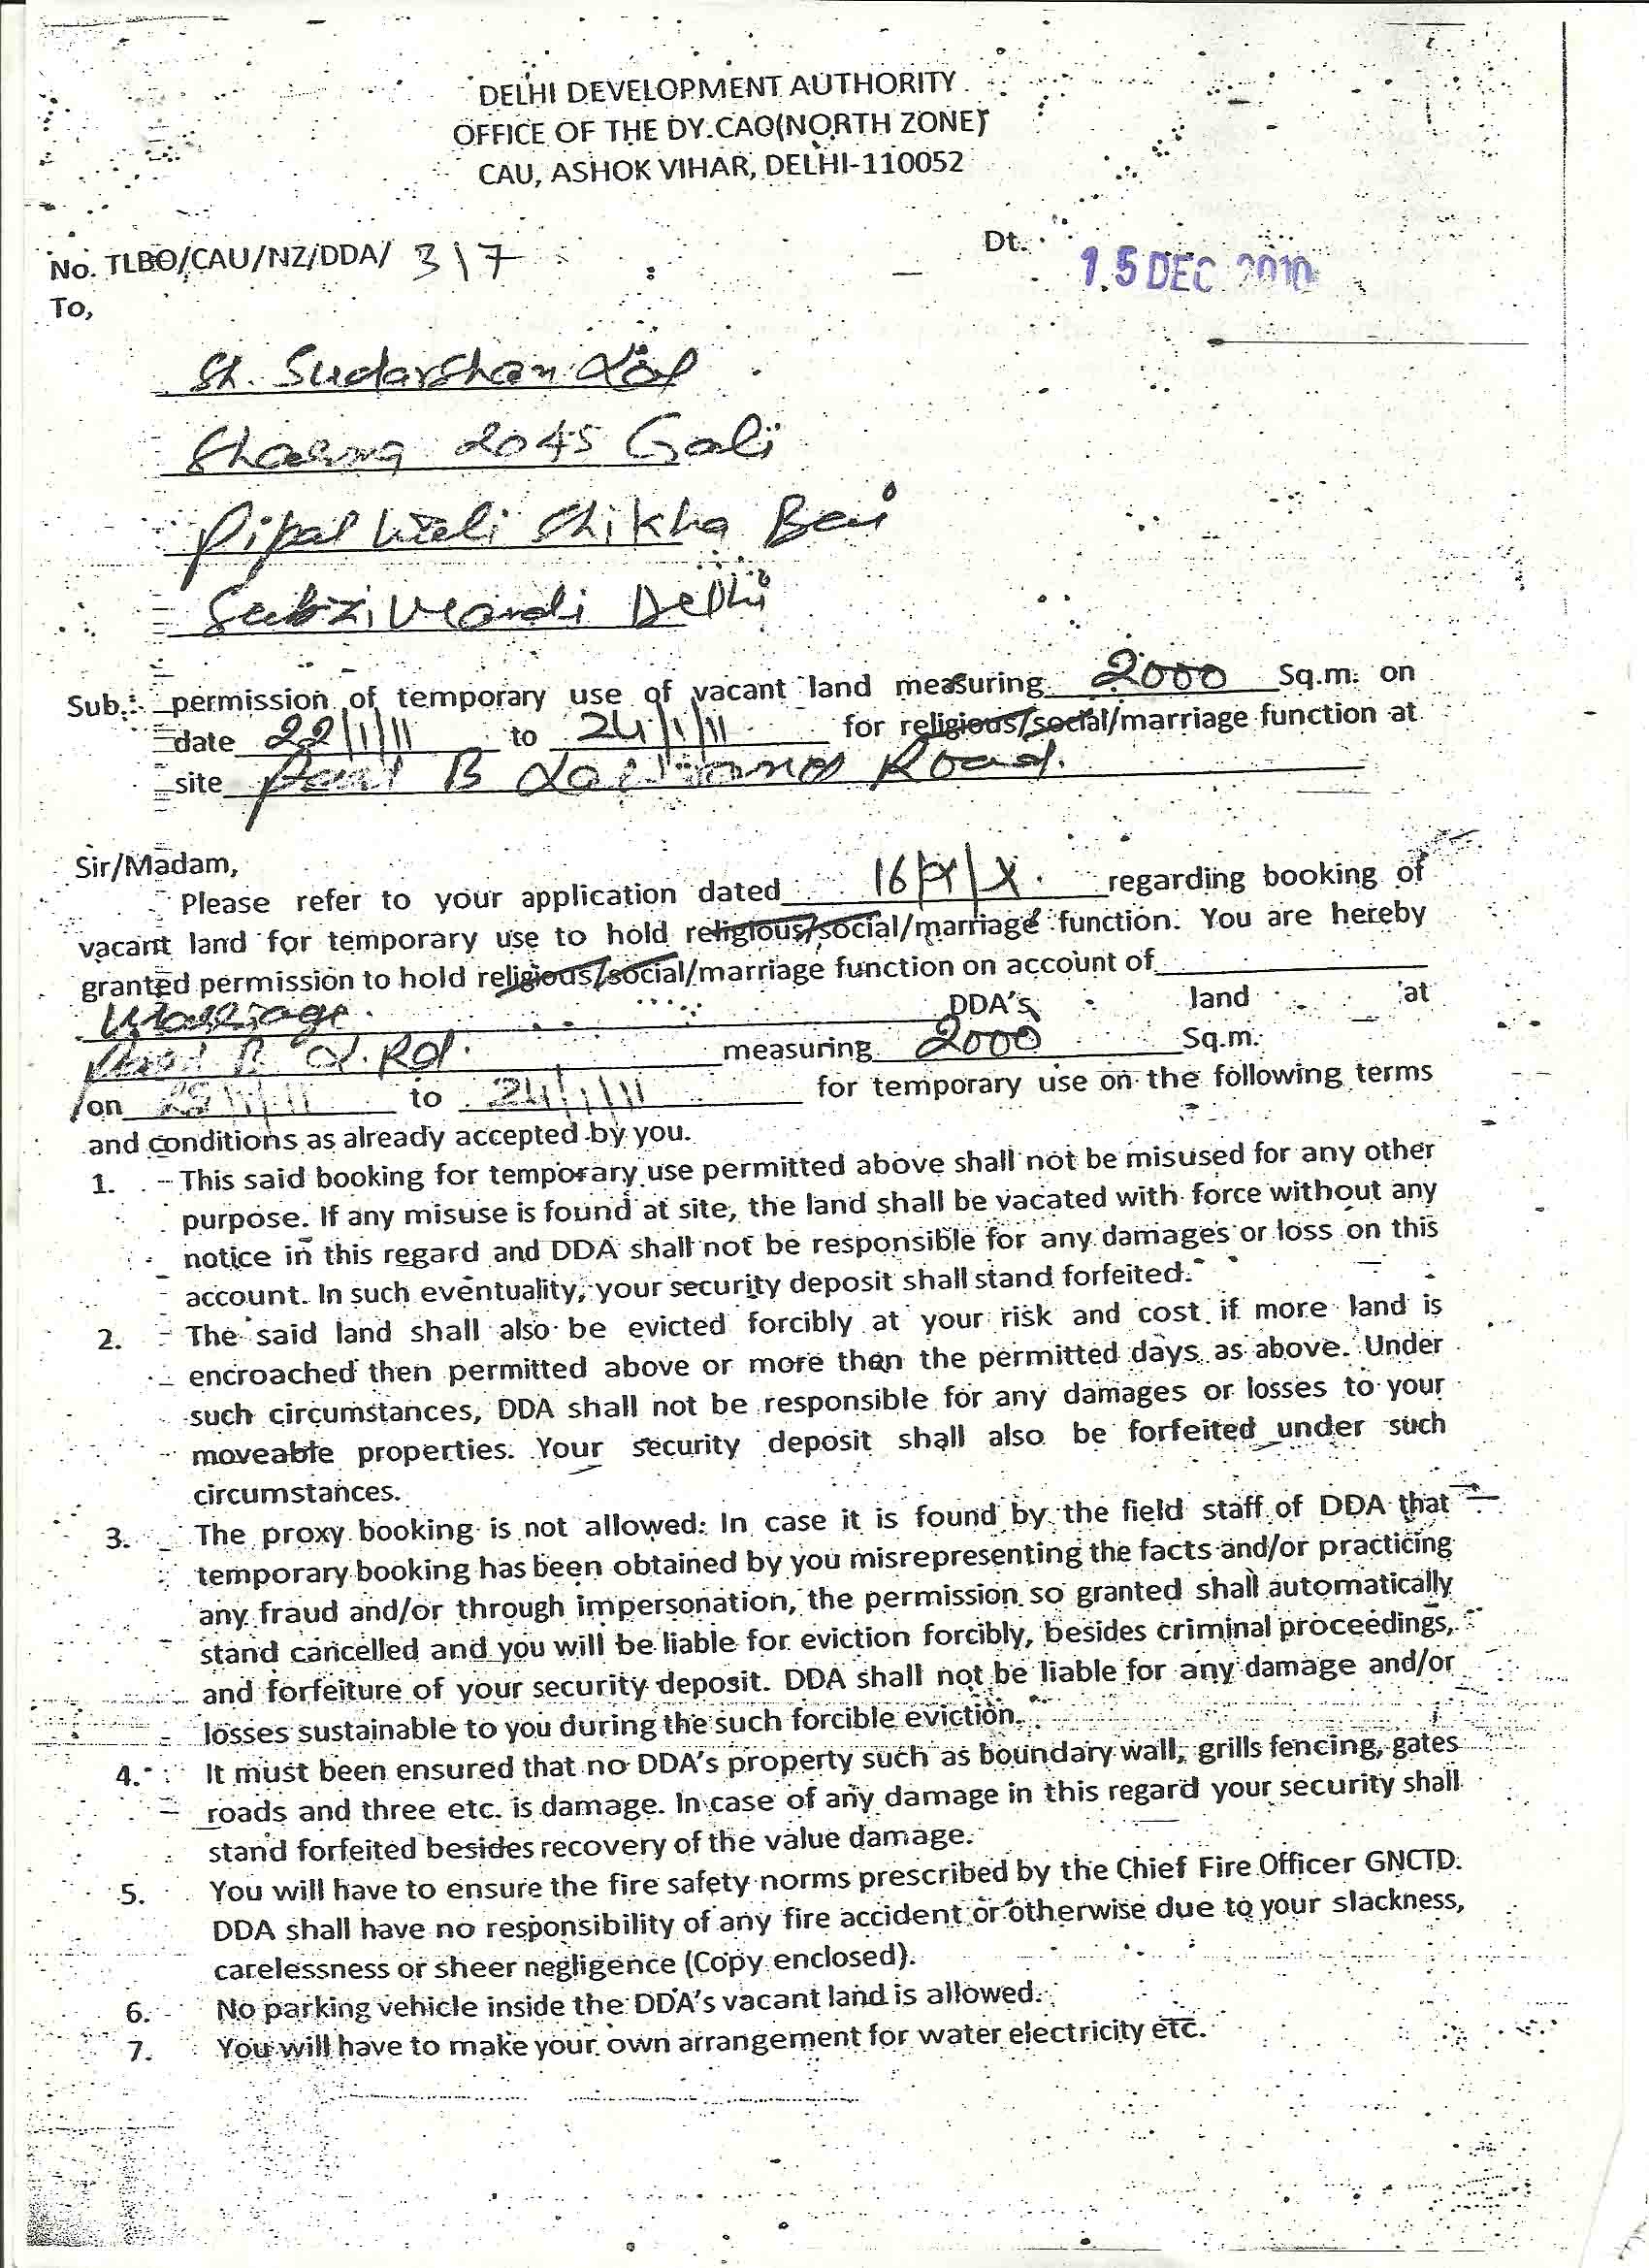 DELHI DEVELOPMENT AUTHORITY
OFFICE OF THE DY.CAO(NORTH ZONE)
CAU, ASHOK VIHAR, DELHI-110052
No. TLBO/CAU/NZ/DDA/ 317
Dt. 15 DEC 2010
To,
Sh. Sudarshan Lal
Sharma 2045 Gali
Pipal Wali Shikha
Subzi Mandi Delhi
Sub.: permission of temporary use of vacant land measuring 2000 Sq.m. on
date 22/1/11 to 24/1/11 for religious/social/marriage function at
site B Road.
Sir/Madam,
Please refer to your application dated regarding booking of
vacant land for temporary use to hold religious/social/marriage function. You are hereby
granted permission to hold religious/social/marriage function on account of
Marriage. DDA's land at
B L. Rd. measuring 2000 Sq.m.
on to 24/1/11 for temporary use on the following terms
and conditions as already accepted by you.
1. This said booking for temporary use permitted above shall not be misused for any other
purpose. If any misuse is found at site, the land shall be vacated with force without any
notice in this regard and DDA shall not be responsible for any damages or loss on this
account. In such eventuality, your security deposit shall stand forfeited.
2. The said land shall also be evicted forcibly at your risk and cost if more land is
encroached then permitted above or more than the permitted days as above. Under
such circumstances, DDA shall not be responsible for any damages or losses to your
moveable properties. Your security deposit shall also be forfeited under such
circumstances.
3. The proxy booking is not allowed: In case it is found by the field staff of DDA that
temporary booking has been obtained by you misrepresenting the facts and/or practicing
any fraud and/or through impersonation, the permission so granted shall automatically
stand cancelled and you will be liable for eviction forcibly, besides criminal proceedings,
and forfeiture of your security deposit. DDA shall not be liable for any damage and/or
losses sustainable to you during the such forcible eviction.
4. It must been ensured that no DDA's property such as boundary wall, grills fencing, gates
roads and three etc. is damage. In case of any damage in this regard your security shall
stand forfeited besides recovery of the value damage.
5. You will have to ensure the fire safety norms prescribed by the Chief Fire Officer GNCTD.
DDA shall have no responsibility of any fire accident or otherwise due to your slackness,
carelessness or sheer negligence (Copy enclosed).
6. No parking vehicle inside the DDA's vacant land is allowed.
7. You will have to make your own arrangement for water electricity etc.